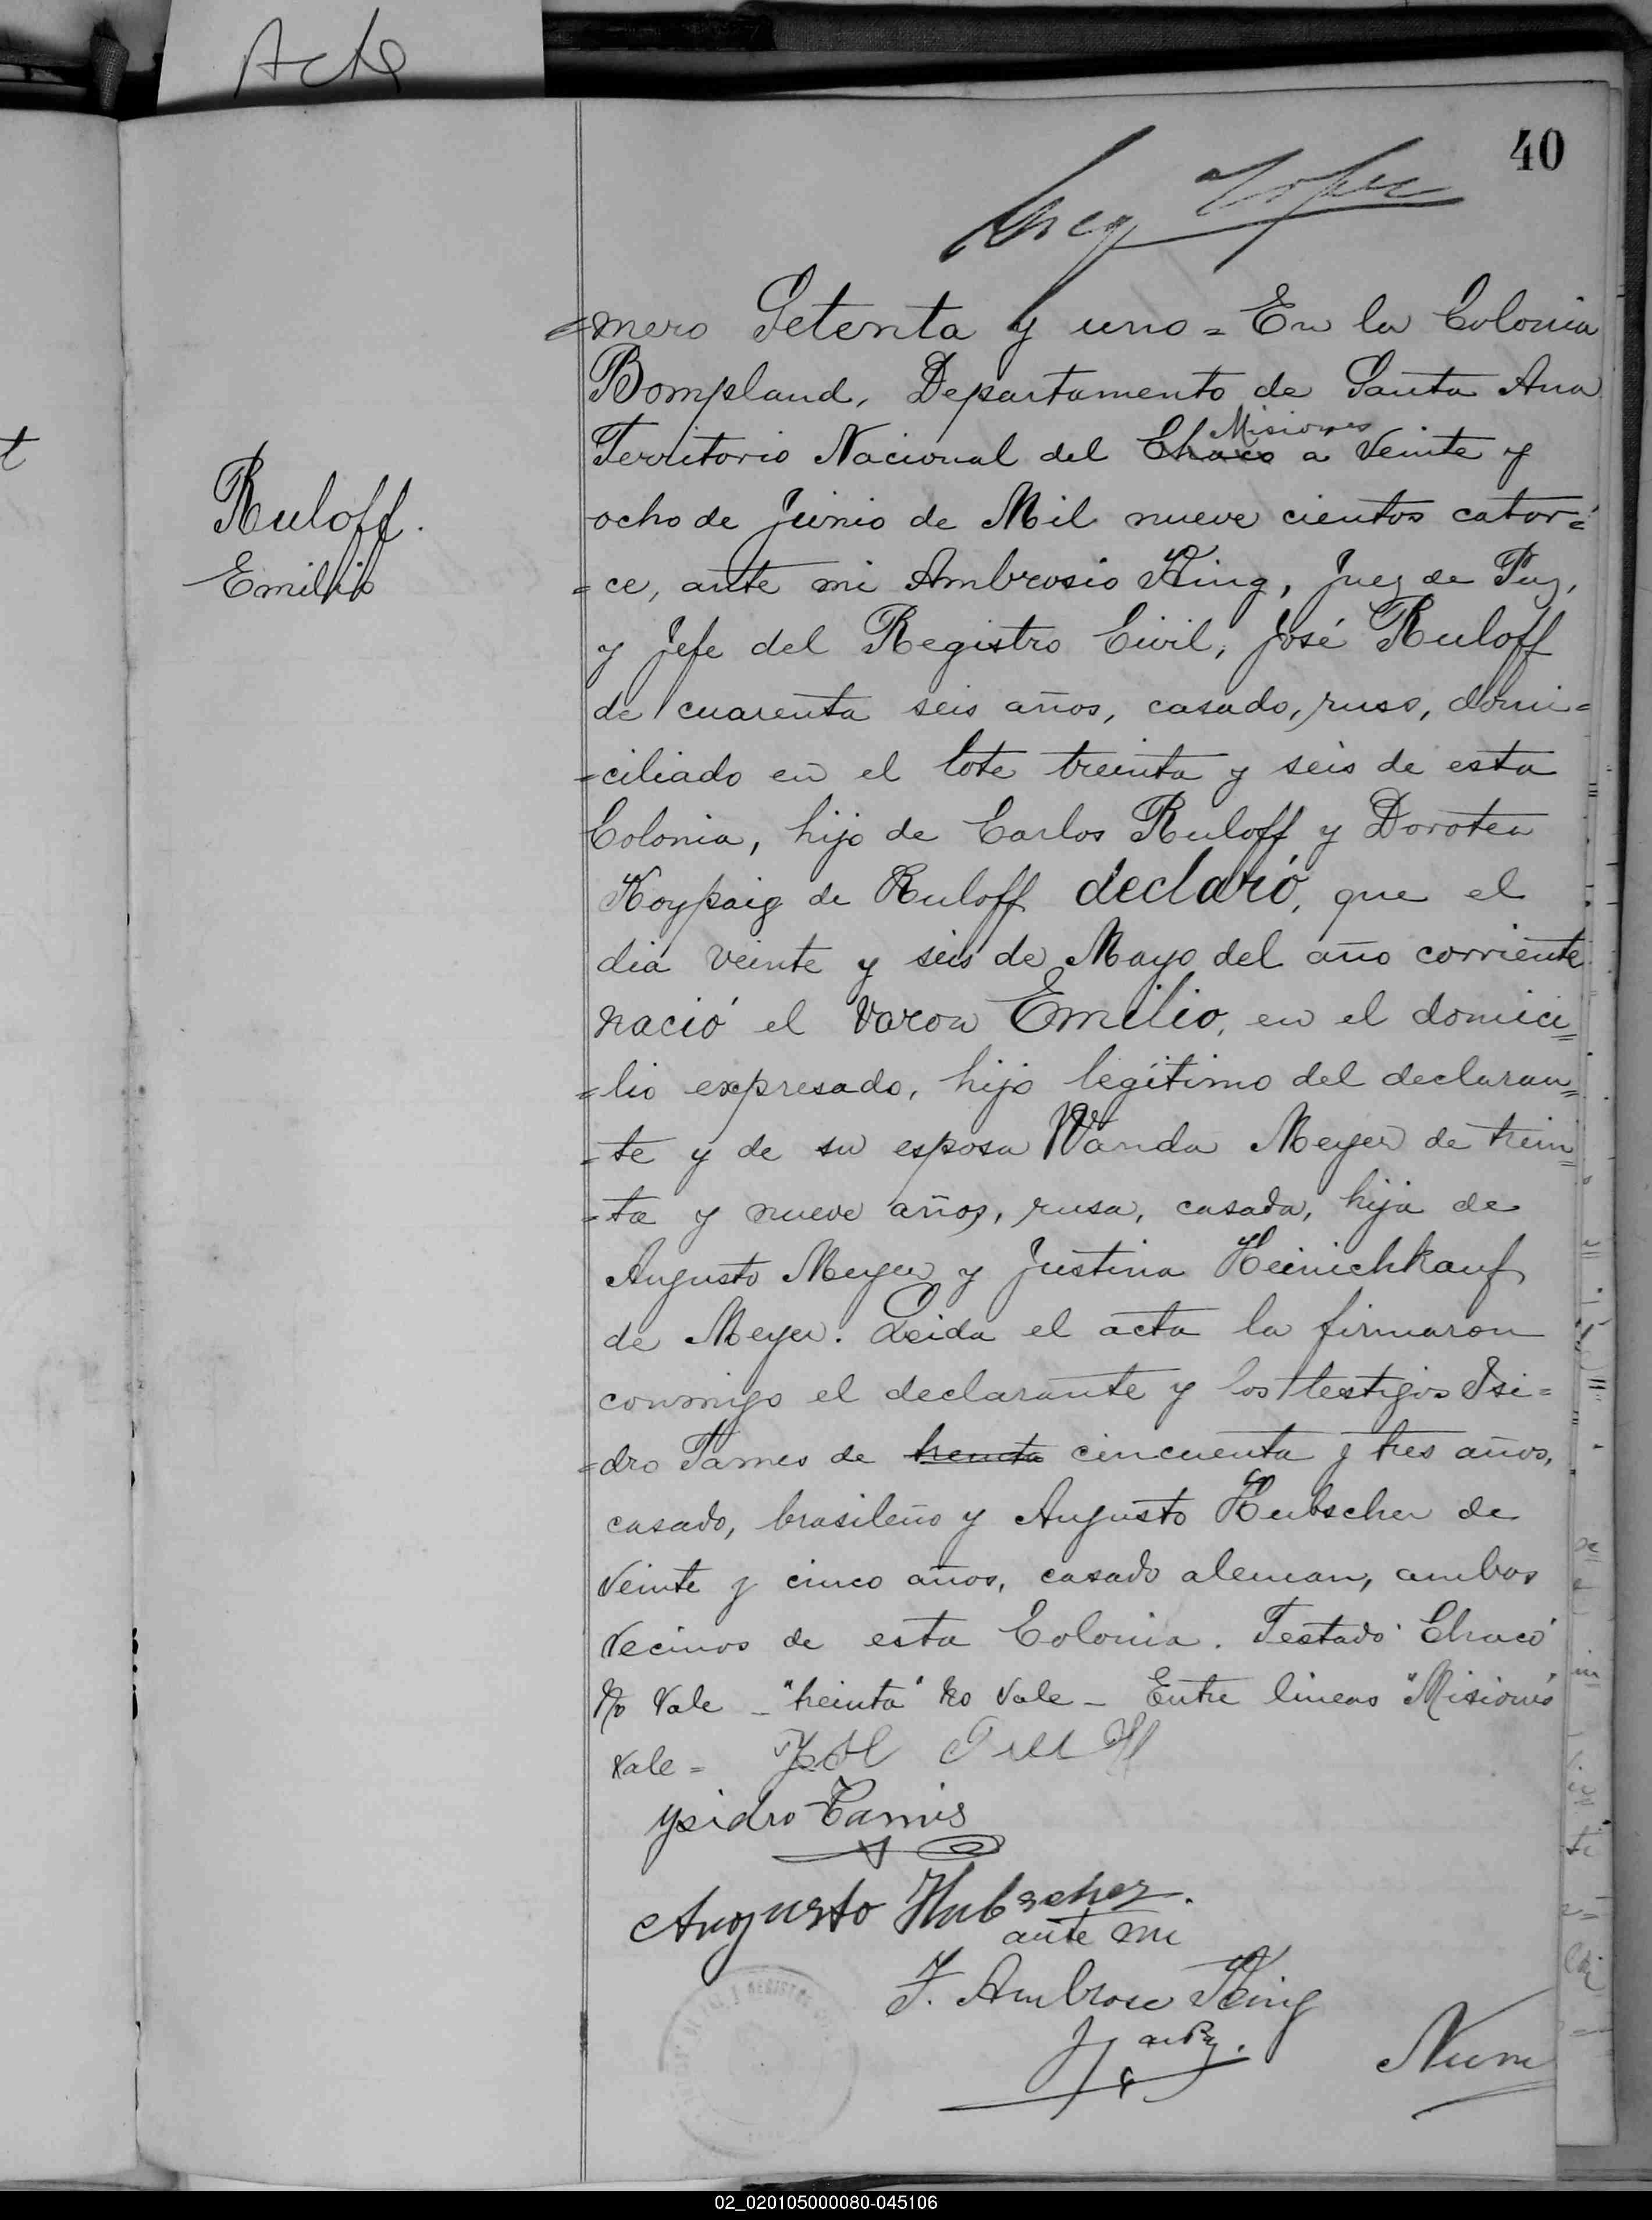 Acta
40
=mero Setenta y uno = En la Colonia
Bompland, Departamento de Santa Ana
Misiones
Territorio Nacional del Chaco a Veinte y
ocho de Junio de Mil nueve cientos cator=
=ce, ante mi Ambrosio King, Juez de Paz,
y Jefe del Registro Civil, José Ruloff
de cuarenta seis años, casado, ruso, domi=
=ciliado en el lote treinta y seis de esta
Colonia, hijo de Carlos Ruloff y Dorotea
Koypaig de Ruloff declaró, que el
dia veinte y seis de Mayo del año corriente
nació el Varon Emilio, en el domici=
=lio expresado, hijo legítimo del declaran=
=te y de su esposa Wanda Meyer de trein=
=ta y nueve años, rusa, casada, hija de
Augusto Meyer y Justina Heinichkauf
de Meyer. Leida el acta la firmaron
conmigo el declarante y los testigos Isi=
=dro Tames de treinta cincuenta y tres años,
casado, brasileño y Augusto Hubscher de
Veinte y cinco años, casado aleman, ambos
Vecinos de esta Colonia. Testado "Chaco"
No Vale _ "treinta" No Vale _ Entre lineas "Misiones"
Vale =
Ysidro Tamis
Augusto Hubscher.
ante mi
J. Ambrose King
J de Pz.
Num
Ruloff.
Emilio
02_020105000080-045106